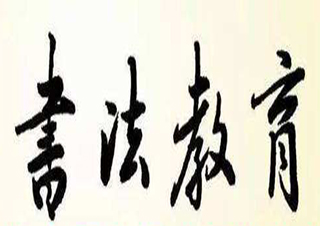 書法教育